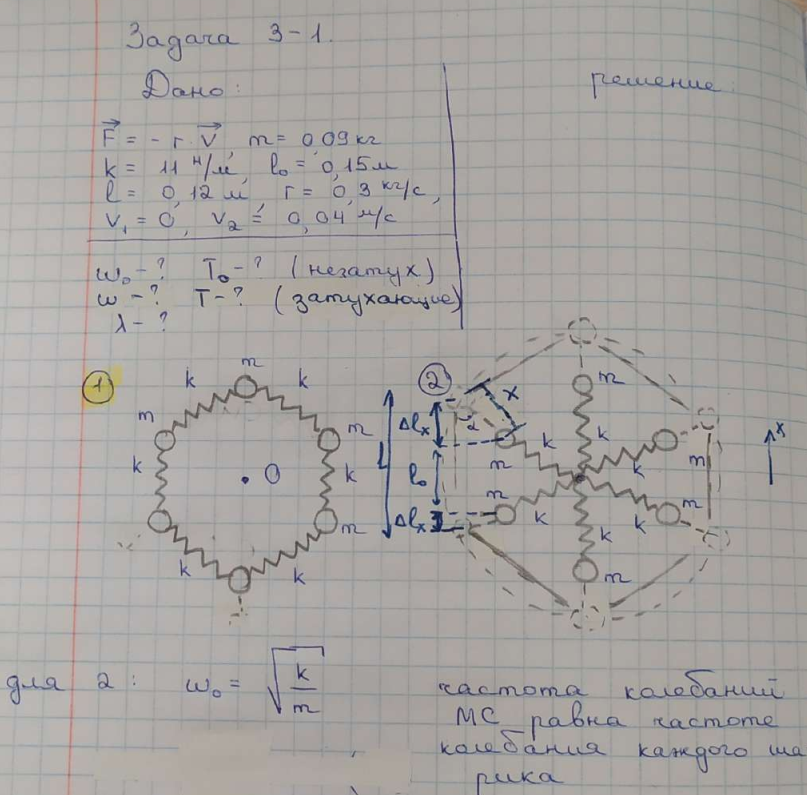 Задача 3-1.
Дано:
решение:
F = - r V, m = 0,09 кг
k = 11 н/м, l₀ = 0,15 м
l = 0,12 м, r = 0,3 кг/с,
V₁ = 0, V₂ = 0,04 м/с
ω₀ - ? T₀ - ? (незатух)
ω - ? T - ? (затухающие)
λ - ?
1
m
k
k
m
m
k
O
k
m
k
k
2
Δlₓ
l₀
Δlₓ
L
x
α
m
k
k
m
m
k
k
k
m
k
m
m
x
для 2: ω₀ = √k/m
частота колебаний
МС равна частоте
колебания каждого ша
рика